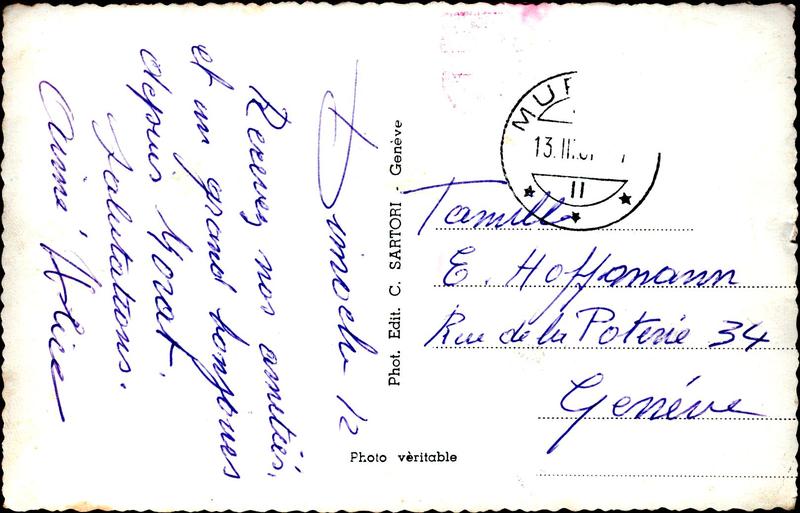 Dimache 12
Recevez nos amitiés.
et un grand bonjours
depuis Morat.
Salutations.
Aimé, Alice
Phot. Edit. C. SARTORI - Genève
Photo vèritable
MUR
13.III.
II
Famille
E. Hoffmann
Rue de la Poterie 34
Genéve